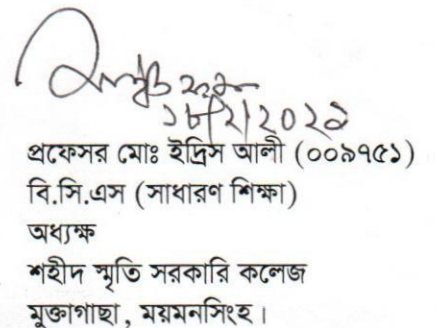 প্রফেসর মোঃ ইদ্রিস আলী (০০৯৭৫১)
বি.সি.এস (সাধারণ শিক্ষা)
অধ্যক্ষ
শহীদ স্মৃতি সরকারি কলেজ
মুক্তাগাছা, ময়মনসিংহ।